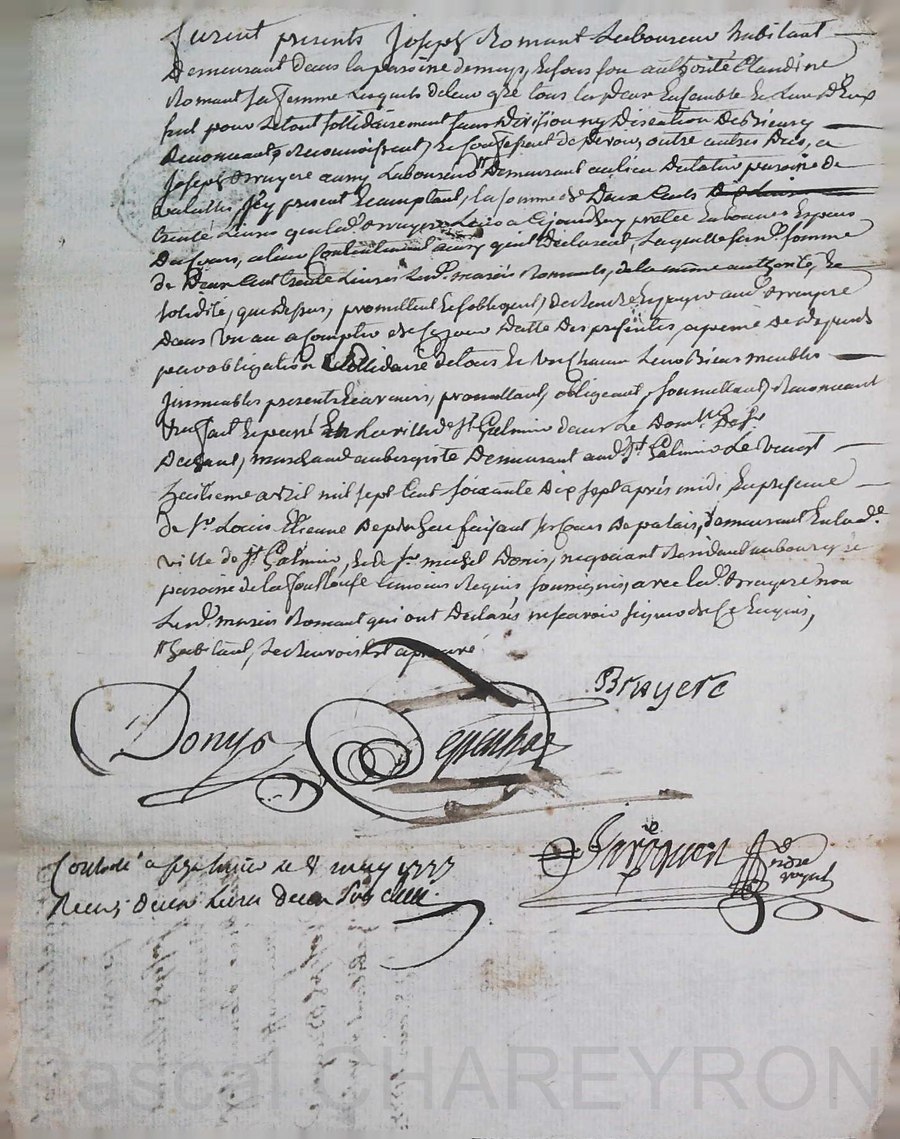 furent presents Joseph Romant Laboureur habitant
Demeurant dans la paroine de meys, Et sous son authorité Claudine
Romant sa femme Lesquels de leur gré tous les deux Ensemble Et L'un D'Eux
seul pour Le tout sollidairement sans Division ny Discution De Biens y
Renonceants Reconnoissent Et Confessent de devoir, outre autres Dus, a
Joseph Bruyere aussy Laboureur Demeurant au lieu paroine de
present Et acceptant, la somme de Deux Cents
trente Livres que lad. Bruyere a Ce jourdhuy prêtée En bonnes Especes
Du Cours, a leur Contentement ainsy qu'ils Declarent, Laquelle somme
de Deux Cent trente Livres Les d. mariés Romants, de la même authorité, Et
solidité, que dessus, promettent Et s'obligent De rendre Et payer aud. Bruyere
Dans Un an a Compter de Ce jour Datte Des presentes, a peine De Depends
par obligation Sollidaire de tous Et Un Chacun Leurs Biens meubles
Immeubles presents Et avenir, promettant, obligeant, soumettant, Renonceant
fait Et passé En la ville de St. Galmier dans Le Domlle De sr.
marchand aubergiste Demeurant aud. St. Galmier Le Vingt
huitieme avril mil sept Cent soixante Dix sept après midi En presence
de sr. Louis Etienne Depinhac faisant son Cours De palais, demeurant En lad.
ville de St. Galmier, Et de sr. michel Donis, negociant Residant au bourg Et
paroine de la fouillouse temoins Requis soussignés, avec lad. Bruyere non
Les d. mariés Romant qui ont Declarés ne scavoir signer de Ce Enquis,
habitant, approuvé
Bruyere
Donys
Depinhac
Controlé a St. Galmier le 8 may 1777
Recus